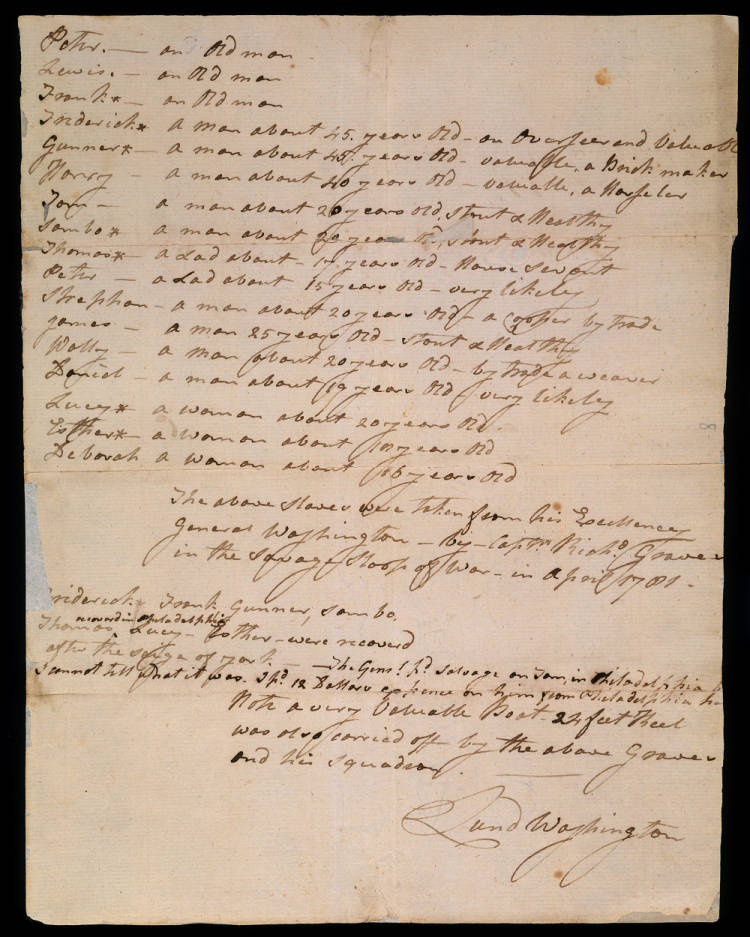 Peter. — an Old man
Lewis. — an Old man
Frank* — an Old man
Frederick* a man about 45. years Old – an Overseer and Valuable
Gunner* – a man about 45. years Old – valuable, a Brick maker
Harry – a man about 40 years Old – valuable, a Horseler
Tom – a man about 20 years old, Stout & Healthy
Sambo* a man about 20 years Old, stout & Healthy
Thomas* – a Lad about – 17 years Old – House servant
Peter — a Lad about 15 years Old – very likely
Stephen – a man about 20 years Old – a Cooper by trade
James – a man 25 years Old – Stout & Healthy
Wally – a man about 20 years Old – by trade a weaver
Daniel – a man about 19 years Old very likely
Lucy* a woman about 20 years Old.
Esther* – a woman about 18 years Old
Deborah a woman about 16 years Old
The above Slaves were taken from his Excellency
General Washington – by – Captn. Richd. Graves
in the Savage Sloop of War – in April 1781.
Friderick, Frank, Gunner, Sambo,
recoverd in Philadelphia
Thomas, Lucy – Esther – were recoverd
after the seige of york. — The Genl. pd. Salvage on Tom in Philadelphia
I cannot tell what it was. I pd. 12 Dollars expence on him from Philadelphia
Note a very Valuable Boat. 24 feet Keel
was also carried off by the above Graves
and his squadron.
Lund Washington